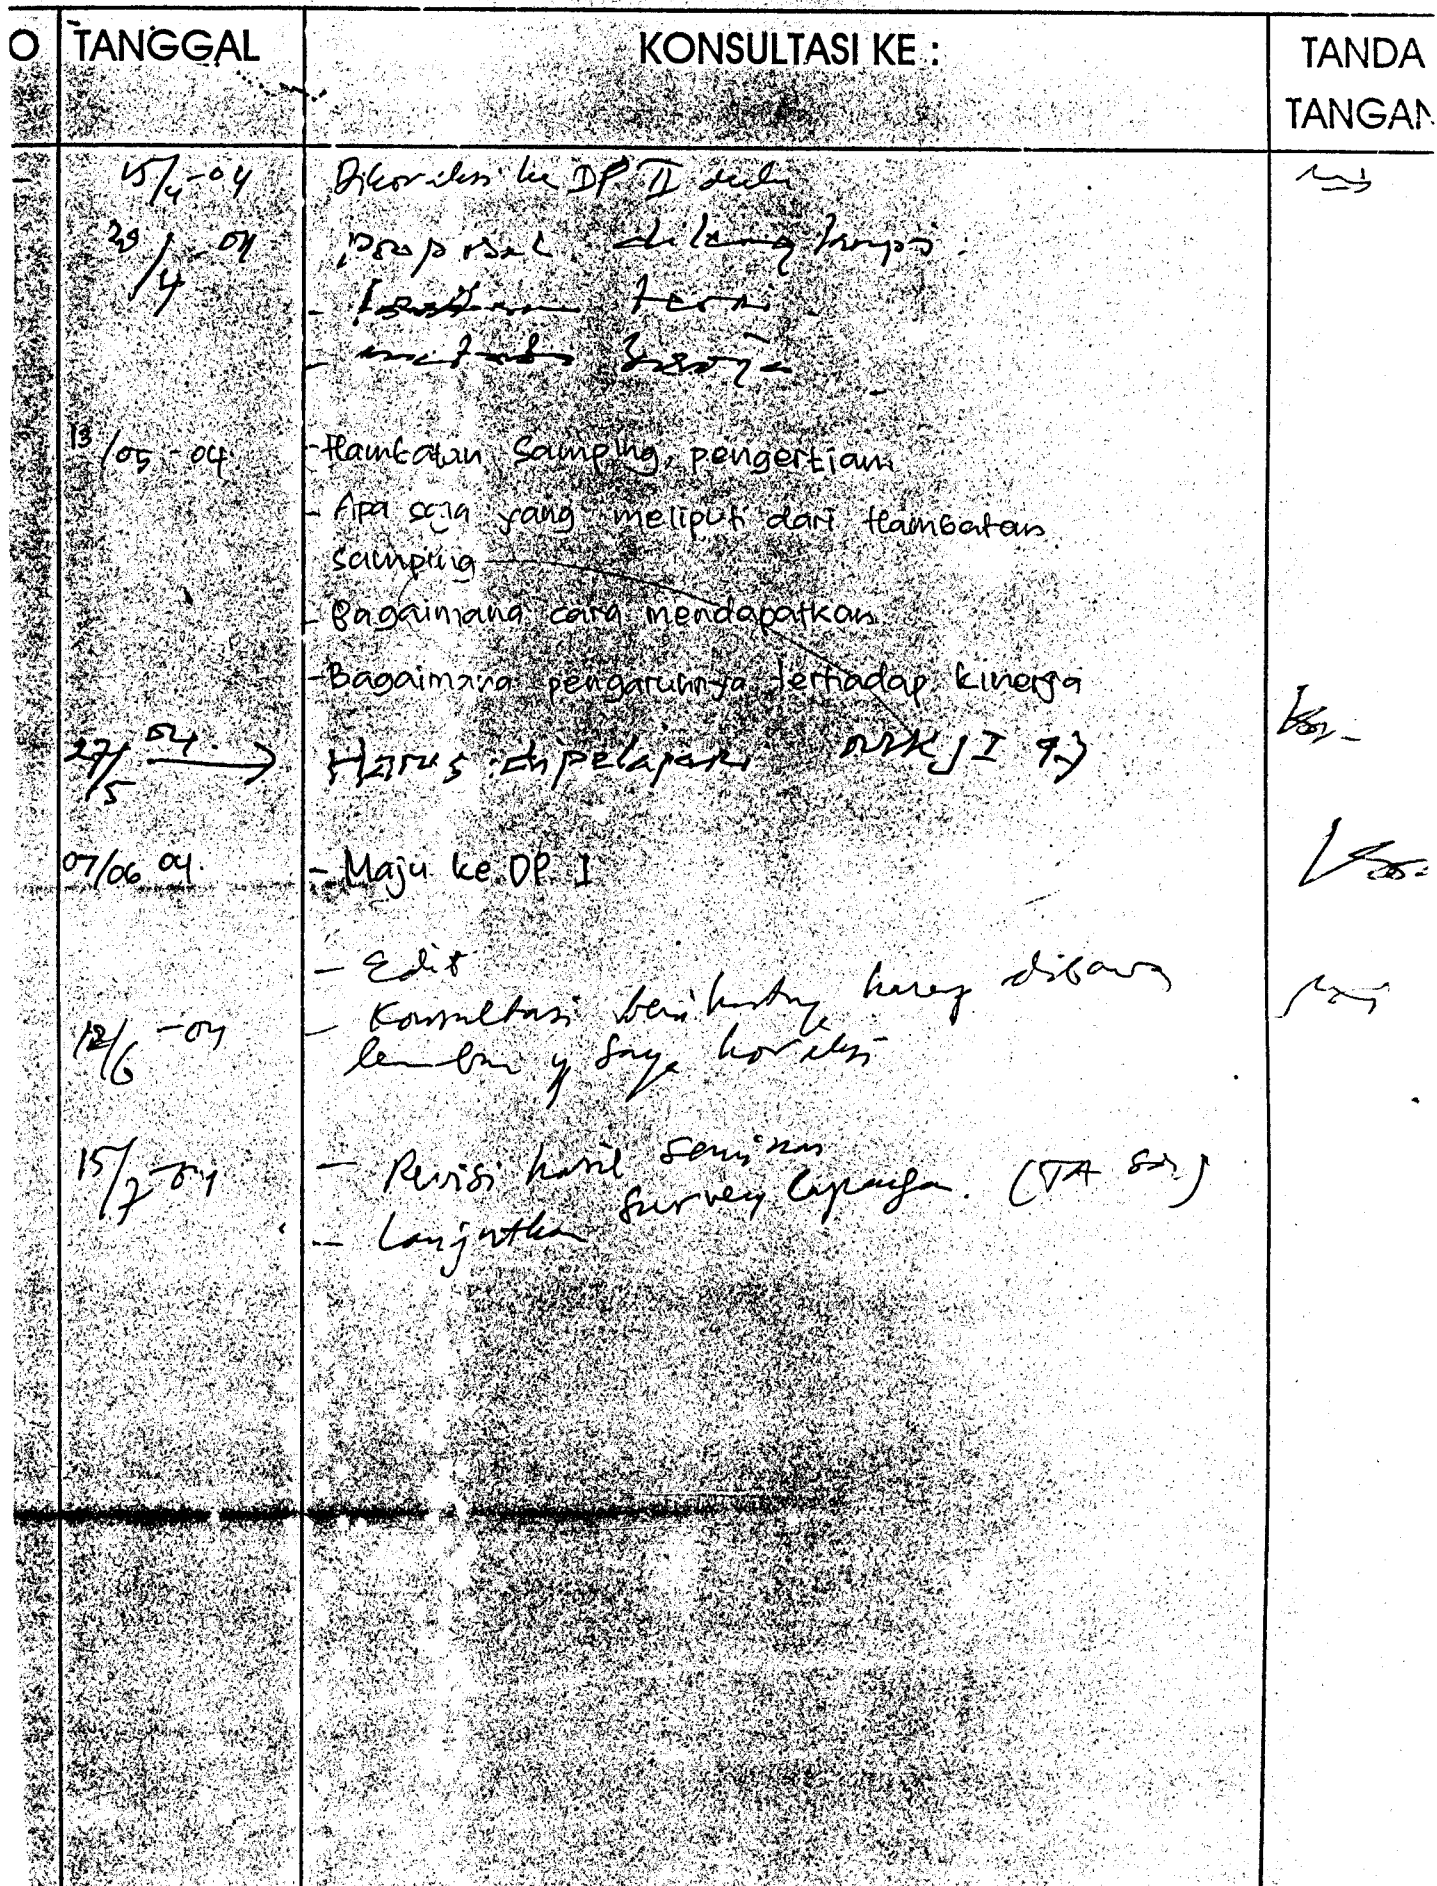 O TANGGAL KONSULTASI KE : TANDA
TANGAN
15/4-04 Dikoreksi ke DP II dulu
29/4-04 proposal dilengkapi.
- teori
- metode kerja
13/05-04. - Hambatan Samping, pengertian
- Apa saja yang meliputi dari Hambatan
samping
- Bagaimana cara mendapatkan
- Bagaimana pengaruhnya terhadap kinerja
27/5 04. → Harus dipelajari MKJI 97
07/06 04. - Maju ke DP I
- Edit
12/6-04 - Konsultasi berikutnya harap dibawa
lembar yg saya koreksi
15/7-04 - Revisi hasil seminar
- Lanjutkan survey lapangan. (TA